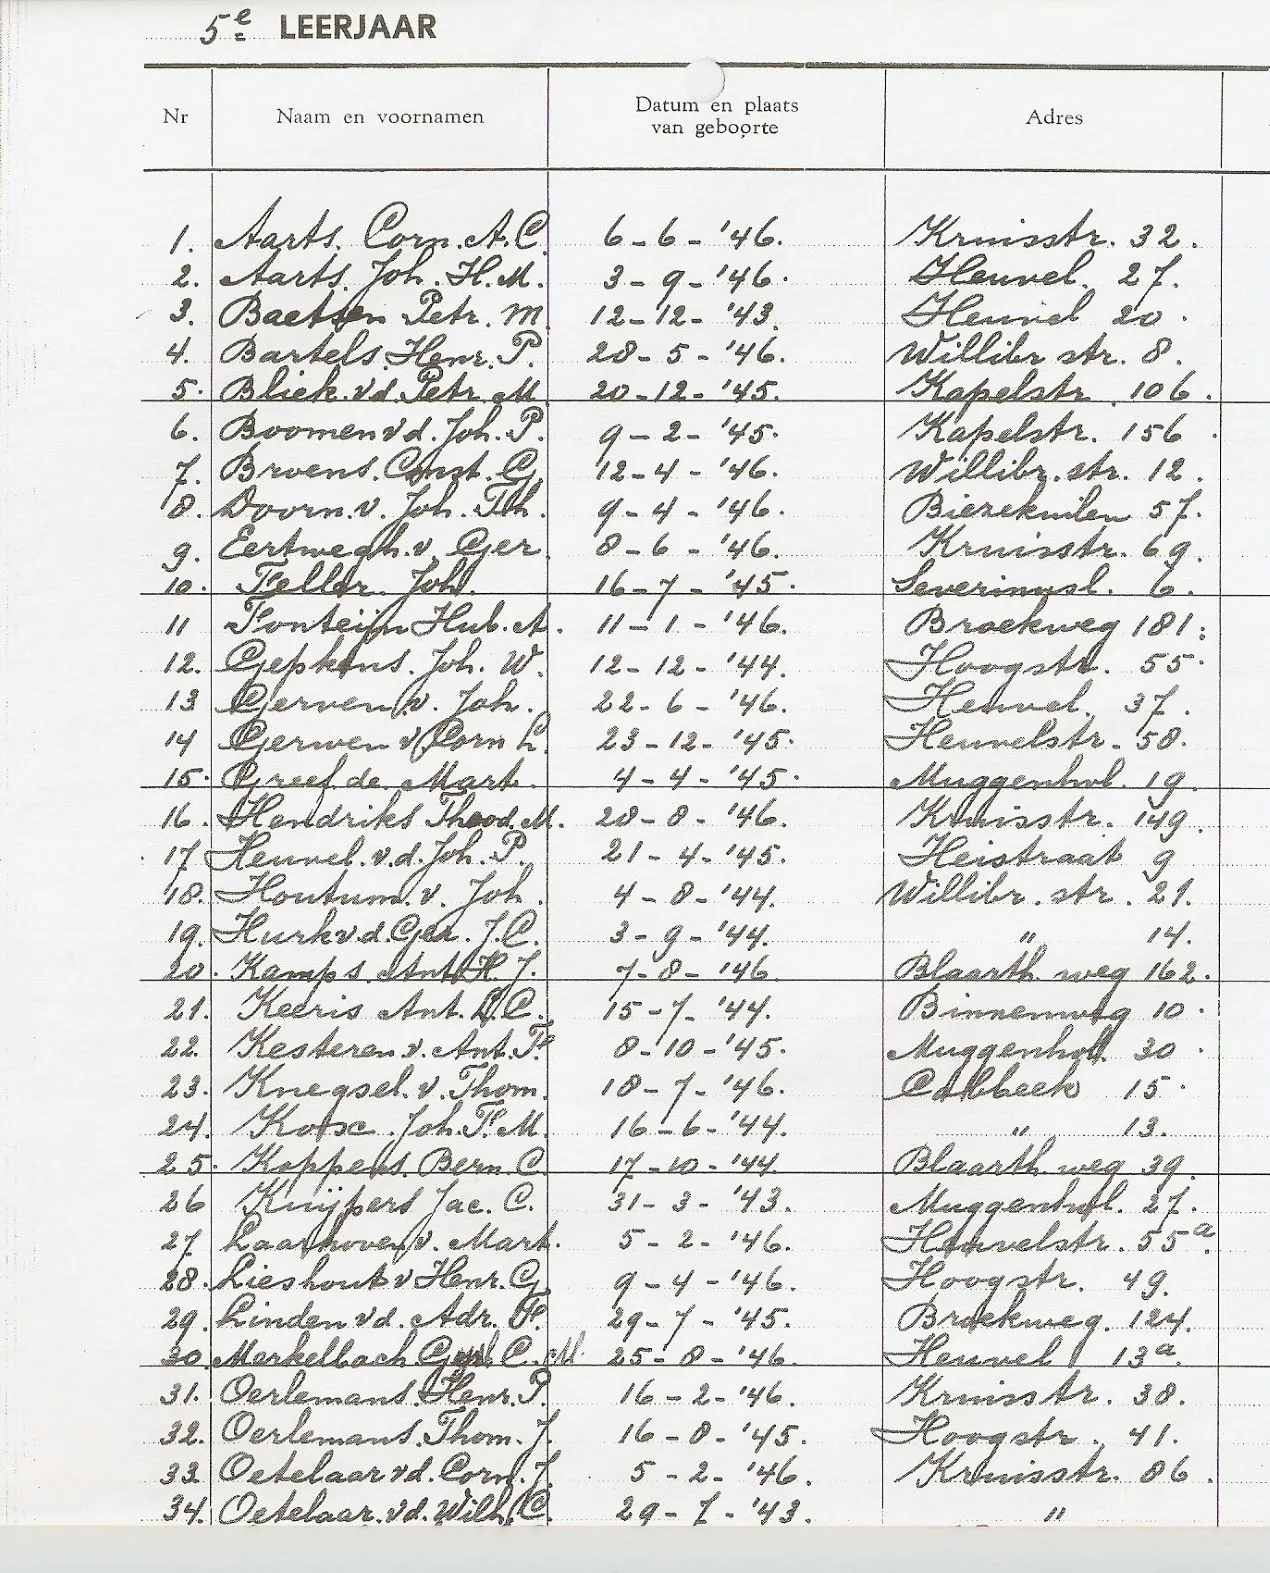 5e LEERJAAR
Nr Naam en voornamen Datum en plaats van geboorte Adres
1. Aarts. Corn. A. C. 6-6-'46. Kruisstr. 32.
2. Aarts. Joh. H. M. 3-9-'46. Heuvel. 27.
3. Baetsen Petr. M. 12-12-'43. Heuvel 20.
4. Bartels. Henr. P. 28-5-'46. Willibr str. 8.
5. Bliek. v.d. Petr. M. 20-12-'45. Kapelstr. 106.
6. Boomen v d. Joh. P. 9-2-'45. Kapelstr. 156.
7. Broens. Const. G. 12-4-'46. Willibr. str. 12.
8. Doorn. v. Joh. Th. 9-4-'46. Biezekuilen 57.
9. Eertwegh. v. Ger. 8-6-'46. Kruisstr. 69.
10. Feller. Joh. 16-7-'45. Severinusl. 6.
11 Fonteijn Hub. A. 11-1-'46. Broekweg 181.
12. Gepkens. Joh. W. 12-12-'44. Hoogstr. 55.
13 Gerven v. Joh. 22-6-'46. Heuvel. 37.
14 Gerwen v. Corn L. 23-12-'45. Heuvelstr. 58.
15. Greef de Mart. 4-4-'45. Muggenhol. 19.
16. Hendriks Theod. M. 28-8-'46. Kruisstr. 149.
17 Heuvel. v.d. Joh. P. 21-4-'45. Heistraat 9
18. Houtum. v. Joh. 4-8-'44. Willibr. str. 21.
19. Hurk v.d. Ger. J. C. 3-9-'44. " 14.
20. Kamps. Ant. H. J. 7-8-'46 Blaarth. weg 162.
21. Keeris Ant. L. C. 15-7-'44. Binnenweg 10.
22. Kesteren v. Ant. F. 8-10-'45. Muggenhol. 30.
23. Knegsel. v. Thom. 18-7-'46. Cobbeek 15.
24. Joh. F. M. 16-6-'44. " 13.
25. Koppens. Bern. C. 17-10-'44. Blaarth. weg 39.
26 Kuijpers Jac. C. 31-3-'43. Muggenhol. 27.
27 Laarhoven v. Mart. 5-2-'46. Heuvelstr. 55a.
28. Lieshout v Henr. G. 9-4-'46. Hoogstr. 49.
29. Linden v d. Adr. F. 29-7-'45. Broekweg. 124.
30. Merkelbach C. M. 25-8-'46. Heuvel 13a.
31. Oerlemans. Henr. P. 16-2-'46. Kruisstr. 38.
32. Oerlemans. Thom. J. 16-8-'45. Hoogstr. 41.
33. Oetelaar v d. Corn. J. 5-2-'46. Kruisstr. 86.
34. Oetelaar. v d. Wilh. C. 29-7-'43. "